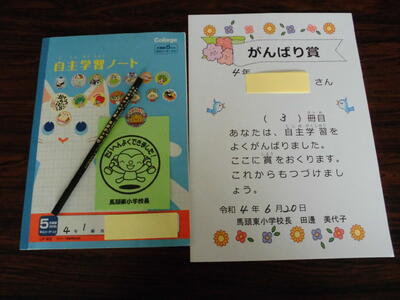 College
自主学習ノート
たいへんよくできました!
馬頭東小学校長
5
4年1組
がんばり賞
4年
さん
(3)冊目
あなたは、自主学習を
よくがんばりました。
ここに賞をおくります。
これからもつづけまし
ょう。
令和4年6月20日
馬頭東小学校長 田邊 美代子